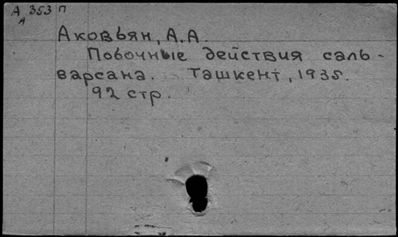 А 353 П
А
Аковьян, А.А.
Побочные действия саль-
варсана. Ташкент, 1935.
92 стр.